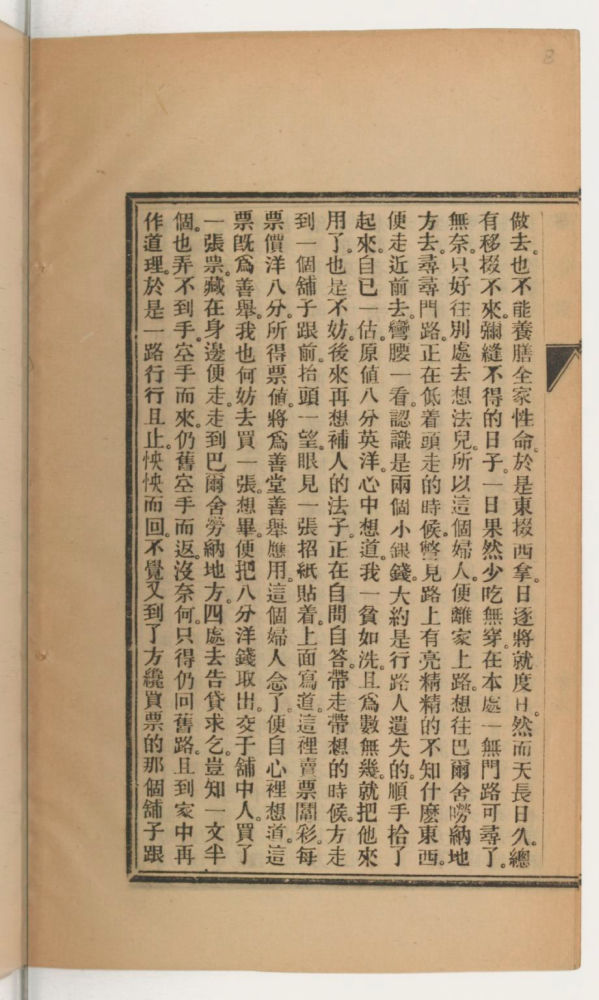 8
做去。也不能養膳全家性命。於是東掇西拿。日逐將就度日。然而天長日久。總
有移掇不來。彌縫不得的日子。一日果然少吃無穿。在本處一無門路可尋了。
無奈。只好往別處去想法兒。所以這個婦人。便離家上路。想往巴爾舍嘮納地
方去。尋尋門路。正在低着頭走的時候。瞥見路上有亮精精的不知什麼東西。
便走近前去。彎腰一看。認識是兩個小銀錢。大約是行路人遺失的。順手拾了
起來。自已一估。原値八分英洋。心中想道。我一貧如洗。且爲數無幾。就把他來
用了。也是不妨。後來再想補人的法子。正在自問自答。帶走帶想的時候。方走
到一個舖子跟前。抬頭一望。眼見一張招紙貼着。上面寫道。這裡賣票鬮彩。每
票價洋八分。所得票値。將爲善堂善舉應用。這個婦人念了。便自心裡想道。這
票旣爲善舉。我也何妨去買一張。想畢。便把八分洋錢取出。交于舖中人。買了
一張票。藏在身邊便走。走到巴爾舍勞納地方。四處去告貸求乞。豈知一文半
個。也弄不到手。空手而來。仍舊空手而返。沒奈何。只得仍回舊路。且到家中再
作道理。於是一路行行且止。怏怏而回。不覺又到了方纔買票的那個舖子跟